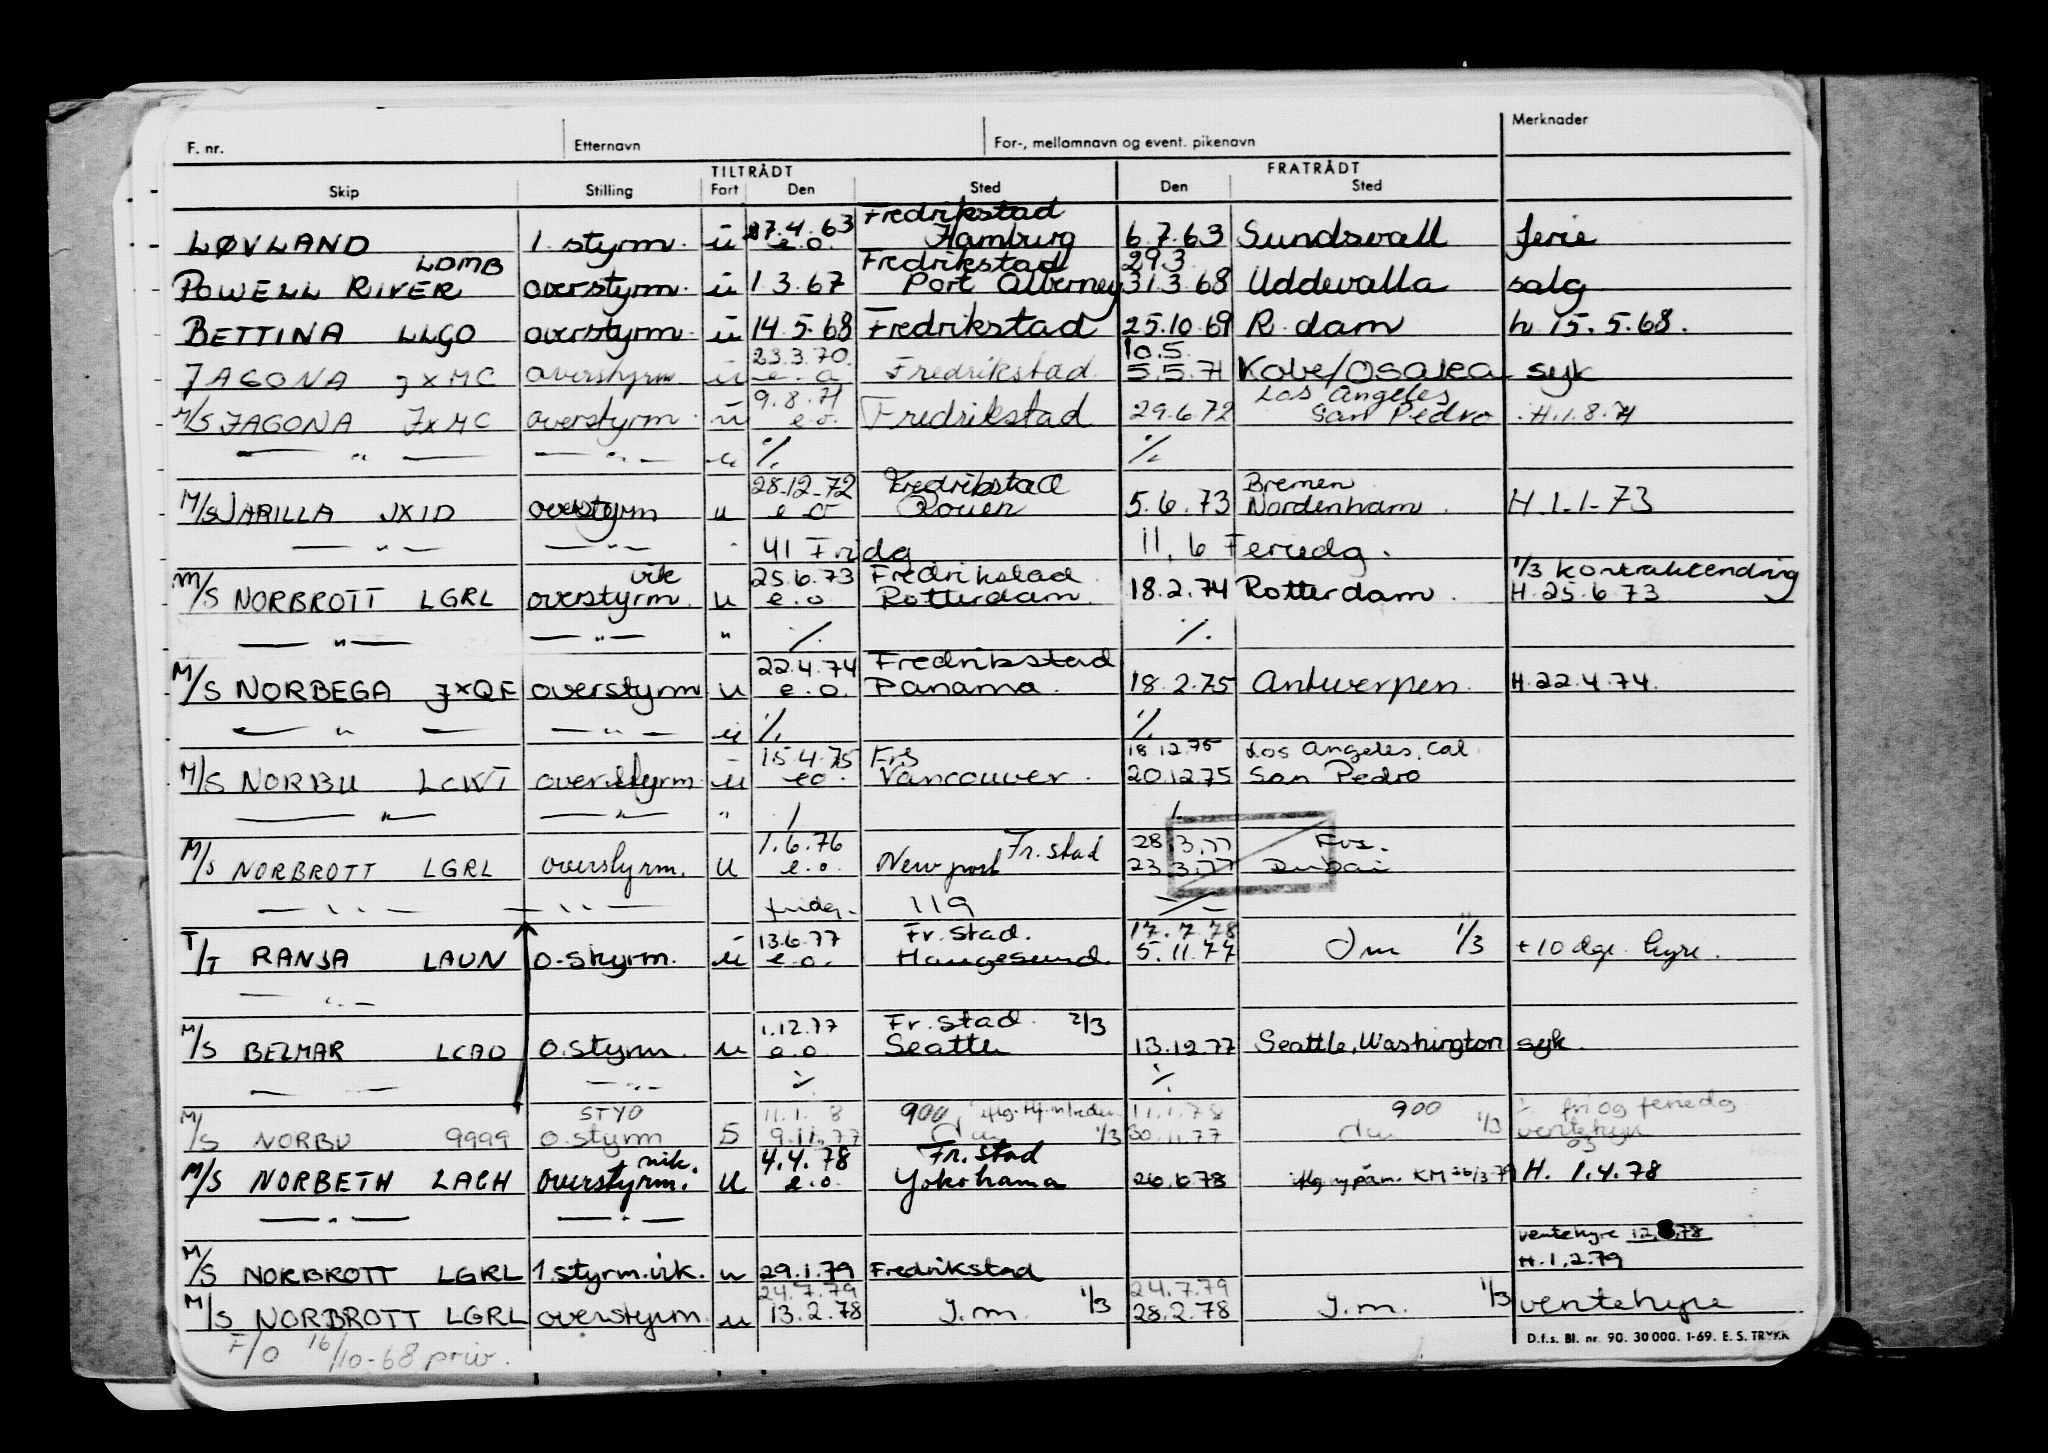 F. nr. Etternavn For-, mellomnavn og event. pikenavn Merknader
TILTRÅDT FRATRÅDT
Skip Stilling Fart Den Sted Den Sted
27.4.63 Fredrikstad
LØVLAND 1. styrm. u e.o. Hamburg 6.7.63 Sundsvall ferie
LDMB Fredrikstad 29.3
POWELL RIVER overstyrm. u 1.3.67 Port Alberney 31.3.68 Uddevalla salg
BETTINA LLGO overstyrm u 14.5.68 Fredrikstad 25.10.69 R.dam h 15.5.68.
23.3.70. 10.5.
JAGONA JXMC overstyrm u e.o Fredrikstad. 5.5.71 Kobe/Osaka syk
9.8.71 Los Angeles
M/S JAGONA JXMC overstyrm u e.o. Fredrikstad 29.6.72 San Pedro H.1.8.71
— " — — " — u % %
28.12.72 Fredrikstad Bremen
M/S JARILLA JXID overstyrm u e o Rouen 5.6.73 Nordenham. H.1.1-73
— " — — " — " 41 Fridg 11.6 Feriedg.
vik 25.6.73 Fredrikstad 1/3 kontraktendring
M/S NORBROTT LGRL overstyrm. u e.o. Rotterdam. 18.2.74 Rotterdam. H.25.6.73
— " — — " — " % %
22.4.74 Fredrikstad
M/S NORBEGA JXQF overstyrm u e.o. Panama. 18.2.75 Antwerpen. H.22.4.74.
— " — — " — u % %
15.4.75 Frs 18.12.75 Los Angeles, Cal.
M/S NORBU LCWT overstyrm. u eo. Vancouver. 20.12.75 San Pedro
— " — — " — "
1.6.76 Fr.stad 28.3.77 Frs.
M/S NORBROTT LGRL overstyrm. u e.o. Newport 23.3.77 Dubai
— " — — " — fridg. 119
13.6.77 Fr.stad. 17.7.78
T/T RANJA LAUN o.styrm. u e.o. Haugesund. 5.11.77 J m 1/3 +10 dgr. hyre.
— " —
1.12.77 Fr.stad. 2/3
M/S BELMAR LCAO o.styrm. u e.o Seattle 13.12.77 Seattle, Washington syk.
— — — " — % %
STYO 11.1. 8 900 11.1.78 900 fri og feriedg
M/S NORBU 9999 o.styrm S 9.11.77 1/3 30.11.77 1/3 ventehyre
vik. 4.4.78 Fr.stad
M/S NORBETH LACH overstyrm. u e.o. Yokohama 26.6.78 H. 1.4.78
— " — — " —
ventehyre
M/S NORBROTT LGRL 1.styrm.vik. u 29.1.79 Fredrikstad H.1.2.79
24.7.79 24.7.79
M/S NORBROTT LGRL overstyrm. u 13.2.78 J.m. 1/3 28.2.78 J.m. 1/3 ventehyre
F/O 16/10-68 priv. D.f.s. Bl. nr. 90. 30 000. 1-69. E. S. TRYKK